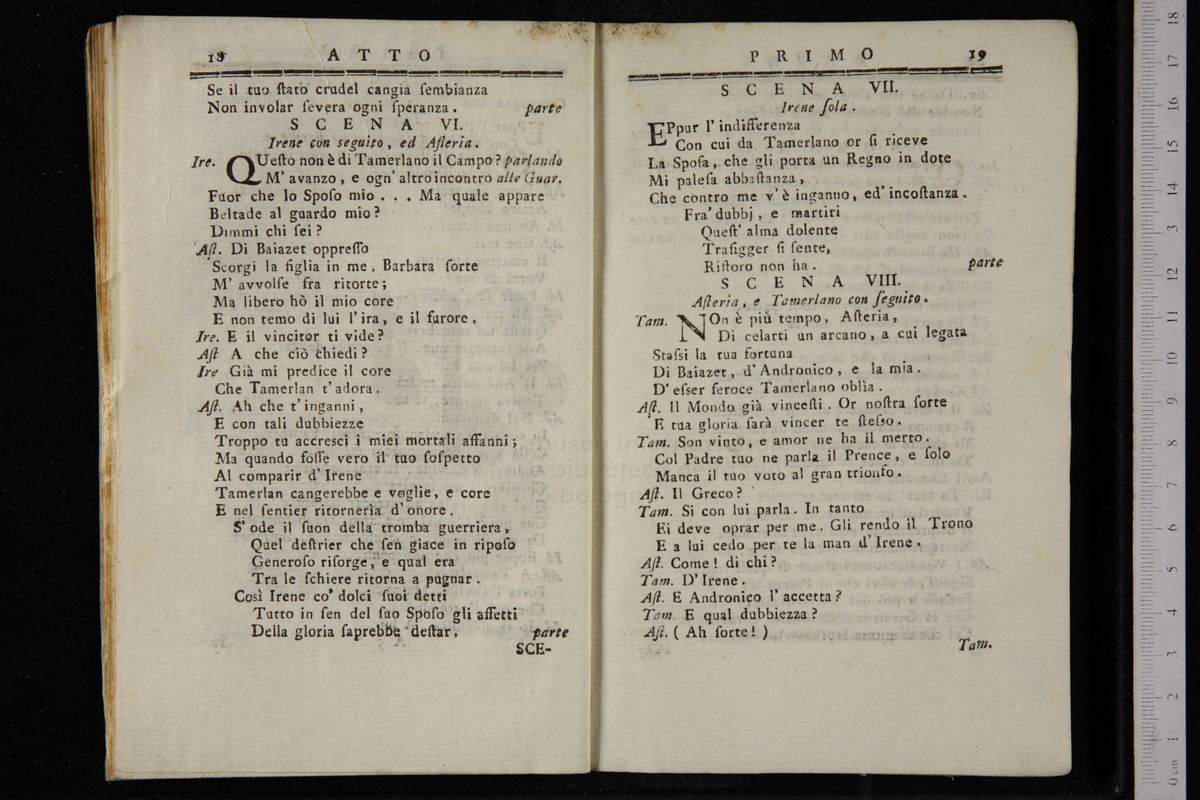 18 ATTO
Se il tuo ſtato crudel cangia ſembianza
Non involar ſevera ogni ſperanza . parte
SCENA VI.
Irene con seguito , ed Aſteria.
Ire. QUeſto non è di Tamerlano il Campo ? parlando
M' avanzo , e ogn' altro incontro alle Guar.
Fuor che lo Spoſo mio . . . Ma quale appare
Beltade al guardo mio ?
Dimmi chi ſei ?
Aſt. Di Baiazet oppreſſo
Scorgi la figlia in me . Barbara ſorte
M' avvolſe fra ritorte ;
Ma libero hò il mio core
E non temo di lui l'ira , e il furore .
Ire. E il vincitor ti vide ?
Aſt A che ciò chiedi ?
Ire Già mi predice il core
Che Tamerlan t'adora .
Aſt. Ah che t'inganni ,
E con tali dubbiezze
Troppo tu accresci i miei mortali affanni ;
Ma quando foſſe vero il tuo ſoſpetto
Al comparir d' Irene
Tamerlan cangerebbe e voglie , e core
E nel ſentier ritornerìa d'onore .
S' ode il ſuon della tromba guerriera ,
Quel deſtrier che ſen giace in ripoſo
Generoſo riſorge , e qual era
Tra le ſchiere ritorna a pugnar .
Così Irene co' dolci ſuoi detti
Tutto in ſen del ſuo Spoſo gli affetti
Della gloria ſaprebbe deſtar . parte
SCE-
PRIMO 19
SCENA VII.
Irene ſola .
EPpur l' indifferenza
Con cui da Tamerlano or ſi riceve
La Spoſa , che gli porta un Regno in dote
Mi paleſa abbaſtanza ,
Che contro me v' è inganno , ed' incoſtanza .
Fra' dubbj , e martiri
Queſt' alma dolente
Trafigger ſi ſente,
Riſtoro non ha . parte
SCENA VIII.
Aſteria , e Tamerlano con ſeguito .
Tam. NOn è più tempo, Aſteria ,
Di celarti un arcano , a cui legata
Staſsi la tua fortuna
Di Baiazet , d' Andronico , e la mia .
D' eſser feroce Tamerlano oblìa .
Aſt. Il Mondo già vinceſti . Or noſtra ſorte
E tua gloria ſarà vincer te ſteſso .
Tam. Son vinto, e amor ne ha il merto .
Col Padre tuo ne parla il Prence, e ſolo
Manca il tuo voto al gran trionfo .
Aſt. Il Greco ?
Tam. Si con lui parla . In tanto
Ei deve oprar per me . Gli rendo il Trono
E a lui cedo per te la man d' Irene .
Aſt. Come ! di chi ?
Tam. D' Irene .
Aſt. E Andronico l' accetta ?
Tam. E qual dubbiezza ?
Aſt. ( Ah ſorte ! )
Tam.